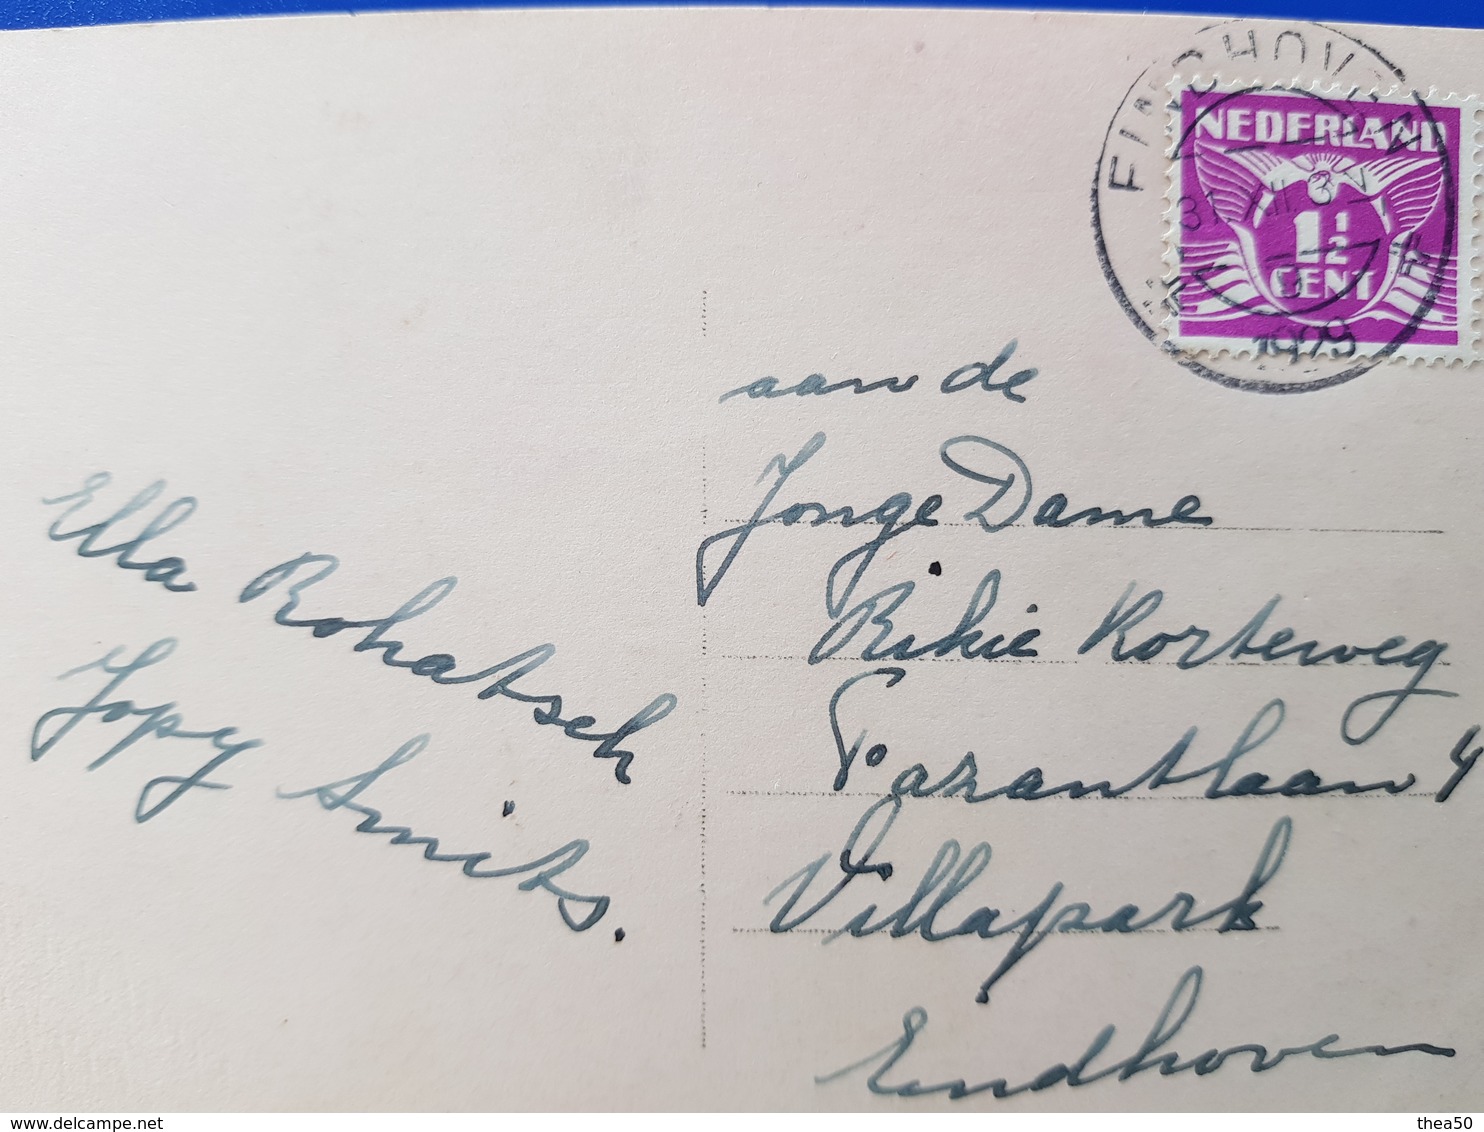 EINDHOVEN
NEDERLAND
31.XII.3
1 1/2
CENT
1929
aan de
Jonge Dame
Rikie Korteweg
Fazantlaan 4
Villapark
Eindhoven
Ella Rohatsch
Jopy Smits.
delcampe.net
thea50